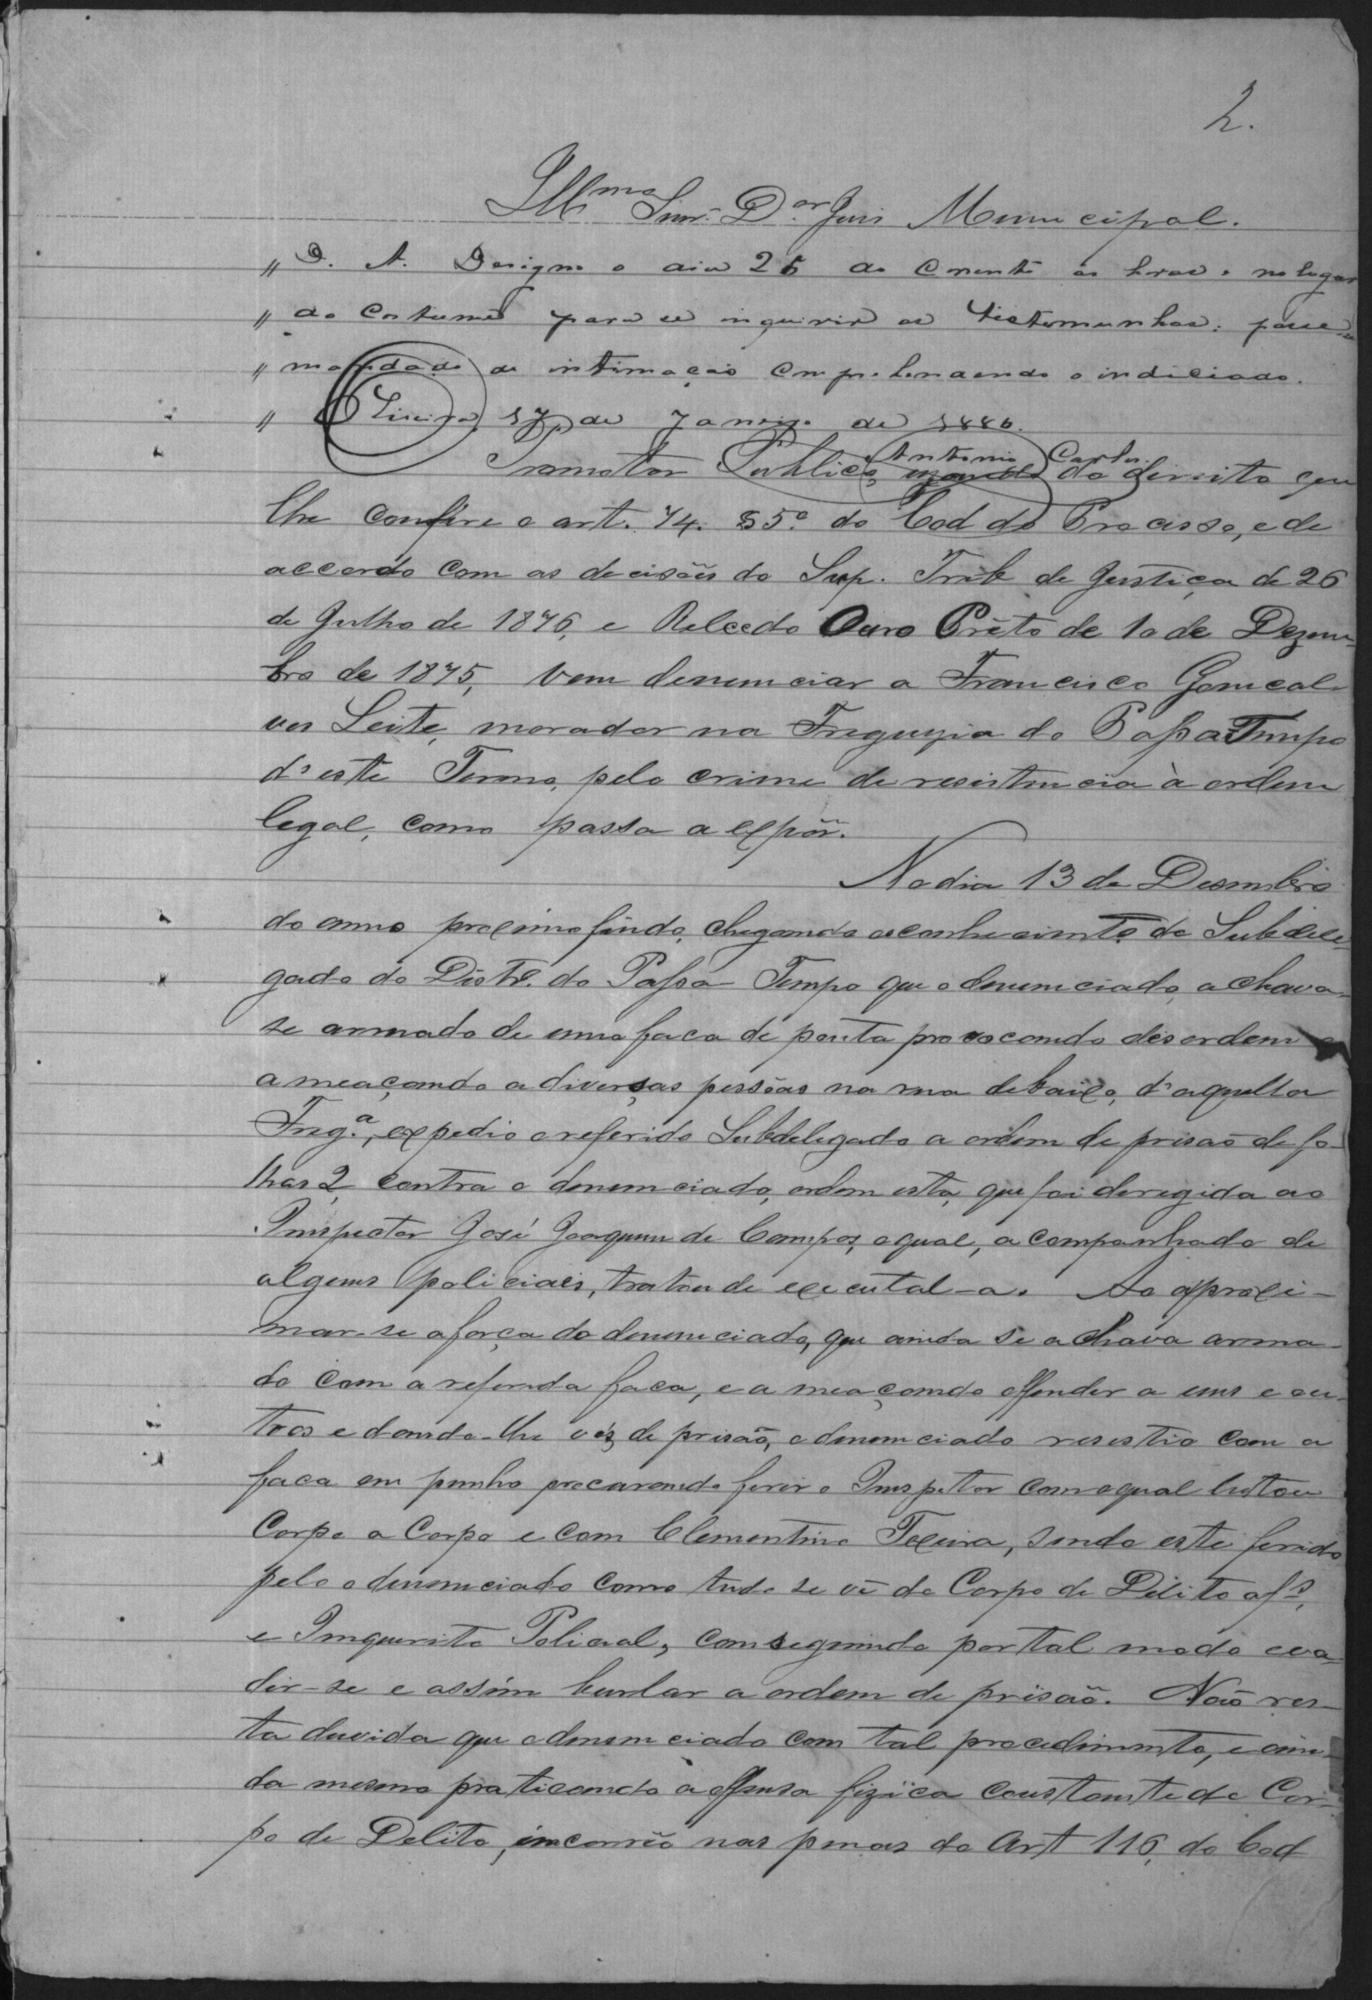 2.
Illmo Snr. Dor Juis Municipal.
" D. A. Designo o dia 26 do Corrente as horas no logar
" do Costume para se inquirir as testemunhas: passe-se
" mandado de intimação Comprehendendo o indiciado.
" Oliveira 17 de Janeiro de 1886.
Antonio Carlos
Promotor Publico, usando do direito que
lhe confere o art. 74. § 5º do Cod do Processo, e de
accordo com as decisões do Sup. Trib de Justiça de 26
de Julho de 1876, e Rel. do Ouro Prêto de 10 de Dezem-
bro de 1875, vem denunciar a Francisco Goncal-
ves Leite, morador na Freguezia do Passa Tempo
d'este Termo, pelo crime de resistencia à ordem
legal, como passa a expôr.
No dia 13 de Desembro
do anno proximo findo, chegando ao conhecimento do Subdele-
gado do Distr. do Passa Tempo que o denunciado, achava-
se armado de uma faca de ponta provocando desordem e
ameaçando a diversas pessôas na rua debaixo, d'aquella
Freg.ª, expedio o referido Subdelegado a ordem de prisaõ de fo-
lhas 2, contra o denunciado, ordem esta, que foi deregida ao
Inspector José Joaquim de Campos, o qual, acompanhado de
alguns policiaes, tratou de executal-a. Ao aproxi-
mar-se a força do denunciado, que ainda se achava arma-
do com a referida faca, e ameaçando offender a uns e ou-
tros e dando-lhe vós de prisaõ, o denunciado resestio com a
faca em punho procurando ferir o Inspetor com o qual lutou
Corpo a Corpo e com Clementino Texeira, sendo este ferido
pelo o denunciado como tudo se vê do Corpo de Delito a fs,
e Inquerito Policial, conseguindo por tal modo eva-
dir-se e assim burlar a ordem de prisaõ. Naõ res-
ta duvida que o denunciado com tal procedimento, e ain-
da mesmo praticando a offensa fizica constante do Cor-
po de Delito, incorrêo nas penas do Art 116, do Cod